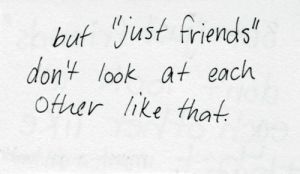 but "just friends"
don't look at each
other like that.